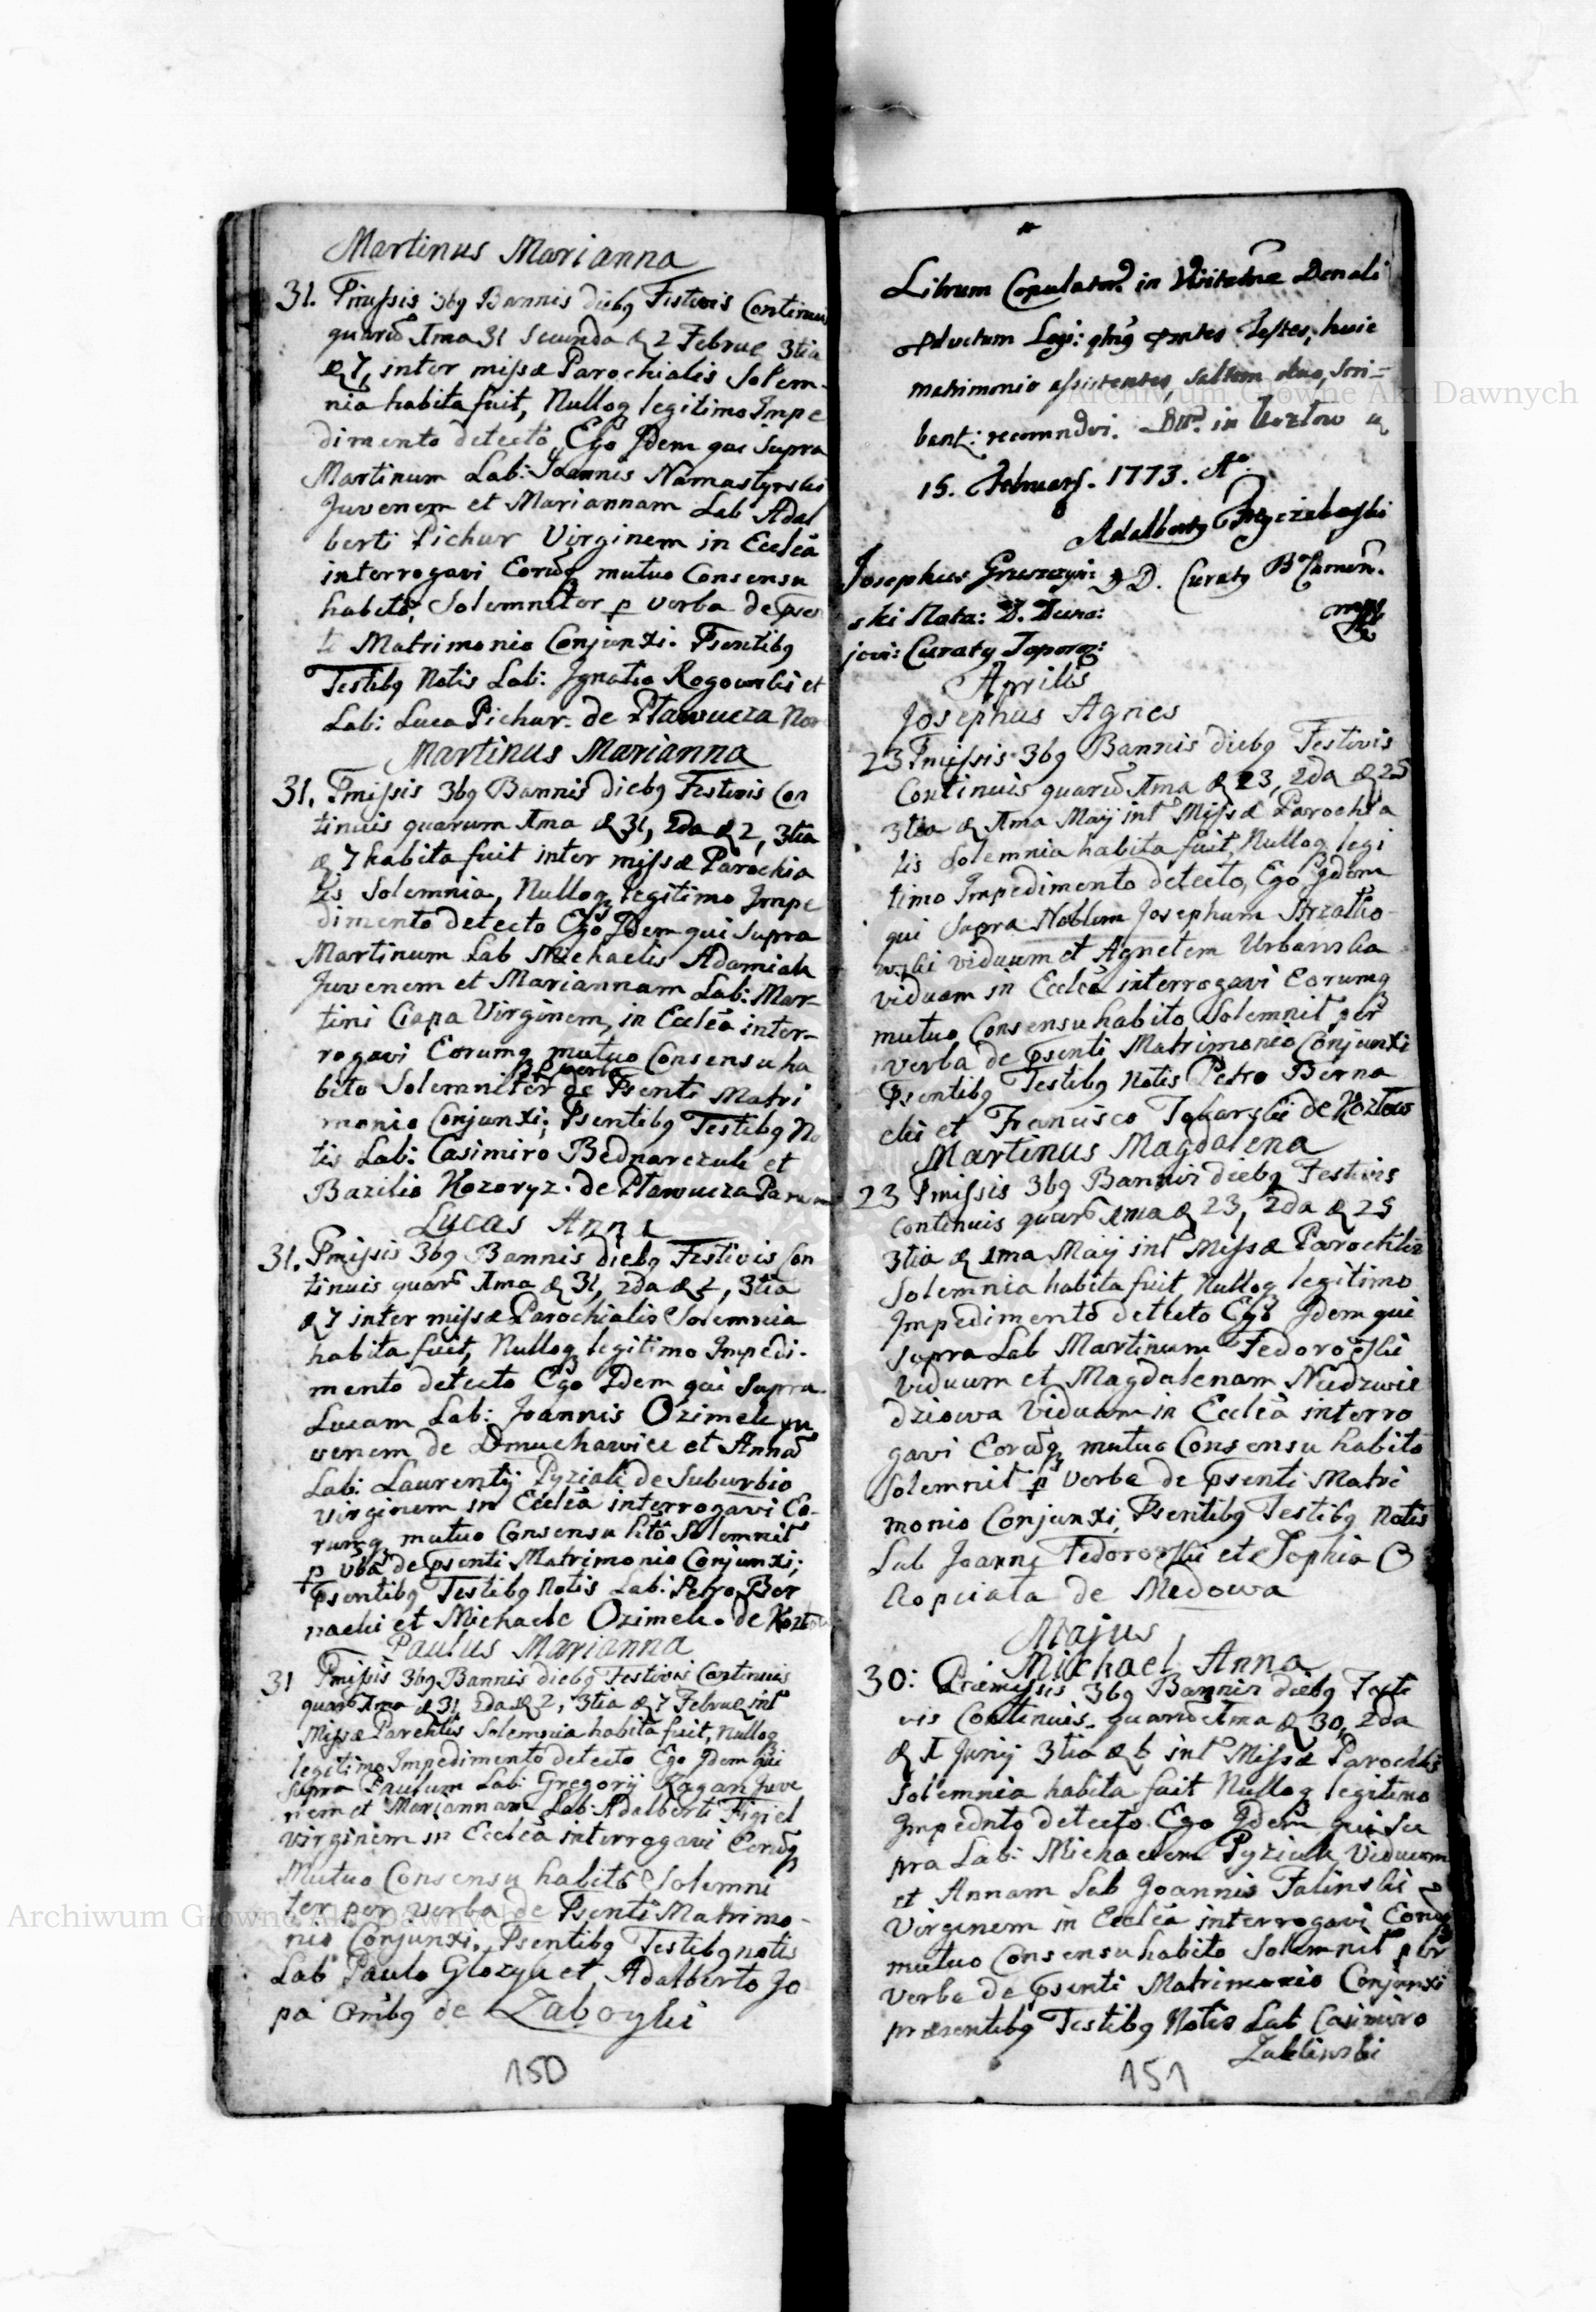 Martinus Marianna
31. Pmissis 3bq Bannis diebq Festivis Continuis
quarū 1ma 31 Secunda & 2 Februę 3tia
& 7, inter missæ Parochialis Solem-
nia habita fuit, Nulloq legitimo Impe
dimento detecto, Ego Idem qui Supra
Martinum Lab: Joannis Namastyrski
Juvenem et Mariannam Lab Adal
berti Pichur Virginem in Ecclēa
interrogavi Eorūq mutuo Consensu
habito, Solemniter p verba de Psen
ti Matrimonio Conjunxi. Psentibq
Testibq Notis Lab: Ignatio Rogowski et
Lab: Luca Pichur. de Pławucza
Martinus Marianna
31. Pmissis 3bq Bannis diebq Festivis Con
tinuis quarum 1ma & 31, 2da & 2, 3tia
& 7 habita fuit inter missæ Parochia
lis Solemnia, Nulloq legitimo Impe
dimento detecto Ego Idem qui Supra
Martinum Lab Michaelis Adamiak
Juvenem et Mariannam Lab: Mar-
tini Ciapa Virginem, in Ecclēa inter-
rogavi Eorumq mutuo Consensu ha
bito Solemniter per verba de Psenti Matri
monio Conjunxi; Psentibq Testibq No
tis Lab: Casimiro Bednarczuk et
Bazilio Kozoryz. de Pławucza Parva
Lucas Anna
31. Pmissis 3bq Bannis diebq Festivis Con
tinuis quarū 1ma & 31, 2da & 2, 3tia
& 7 inter missæ Parochialis Solemnia
habita fuit, Nulloq legitimo Impedi-
mento detecto Ego Idem qui Supra
Lucam Lab: Joannis Ozimek ju
venem de Dmuchawice et Annā
Lab: Laurentij Pyziak de Suburbio
virginem in Ecclēa interrogavi Eo-
rumq mutuo Consensu hitō Solemnit
p vba de Psenti Matrimonio Conjunxi;
Psentibq Testibq Notis Lab: Petro Ber
nacki et Michaele Ozimek. de Kozłow
Paulus Marianna
31 Pmissis 3bq Bannis diebq Festivis Continuis
quarū 1ma & 31, 2da & 2, 3tia & 7 Februę int
Missæ Parchlis Solemnia habita fuit, Nulloq
legitimo Impedimento detecto Ego Idem qui
Supra Paulum Lab: Gregorij Kagan Juve
nem et Mariannam Lab: Adalberti Figiel
virginem in Ecclēa interrogavi Eorūq
Mutuo Consensu habitō Solemni
ter per verba de Psenti Matrimo-
nio Conjunxi, Psentibq Testibq notis
Lab Paulo Glozyk et Adalberto Jo
pa Omibq de Zaboyki
150
Librum Copulator in Visitatne Decnali
Adductum Legi: Testes, huic
matrimonio assistentes, saltem duo, scri-
bant: recomndvi. in Kozlow
15. Februarj. 1773. Aº
Adalbertq
Josephus D. Curatq
ski Nota: D.
Curatq
Aprilis
Josephus Agnes
23 Pmissis 3bq Bannis diebq Festivis
Continuis quarū 1ma & 23, 2da & 25
3tia & 1ma Maij int Missæ Parochia
lis Solemnia habita fuit, Nulloq legi
timo Impedimento detecto, Ego Idem
qui Supra Noblem Josephum Strzałko-
wski viduum et Agnetem Urbanska
viduam in Ecclēa interrogavi Eorumq
mutuo Consensu habito Solemnit per
verba de Psenti Matrimonio Conjunxi
Psentibq Testibq Notis Petro Berna
cki et Francisco Tokarski de Kozłow
Martinus Magdalena
23 Pmissis 3bq Bannis diebq Festivis
Continuis quarū 1ma & 23, 2da & 25
3tia & 1ma Maij int Missæ Parochlis
Solemnia habita fuit Nulloq legitimo
Impedimento detecto Ego Idem qui
supra Lab Martinum Fedorowski
viduum et Magdalenam Niedzwie
dziowa Viduam in Ecclēa interro
gavi Eorūq mutuo Consensu habito
Solemnit p verba de Psenti Matri
monio Conjunxi, Psentibq Testibq Notis
Lab Joanne Fedorowski et Sophia O
kopciata de Medowa
Majus
Michael Anna
30: Præmissis 3bq Bannis diebq Festi
vis Continuis quarū 1ma & 30, 2da
& 1 Junij 3tia & 6 int Missæ Parochlis
Solemnia habita fuit Nulloq legitimo
Impednto detecto Ego Idem qui Su
pra Lab: Michaelem Pyziak Viduum
et Annam Lab Joannis Falinski
Virginem in Ecclēa interrogavi Eorūq
mutuo Consensu habito Solemnit per
verba de Psenti Matrimonio Conjunxi
præsentibq Testibq Notis Lab Casimiro
Zaklinski
151
Archiwum Główne Akt Dawnych
Archiwum Główne Akt Dawnych